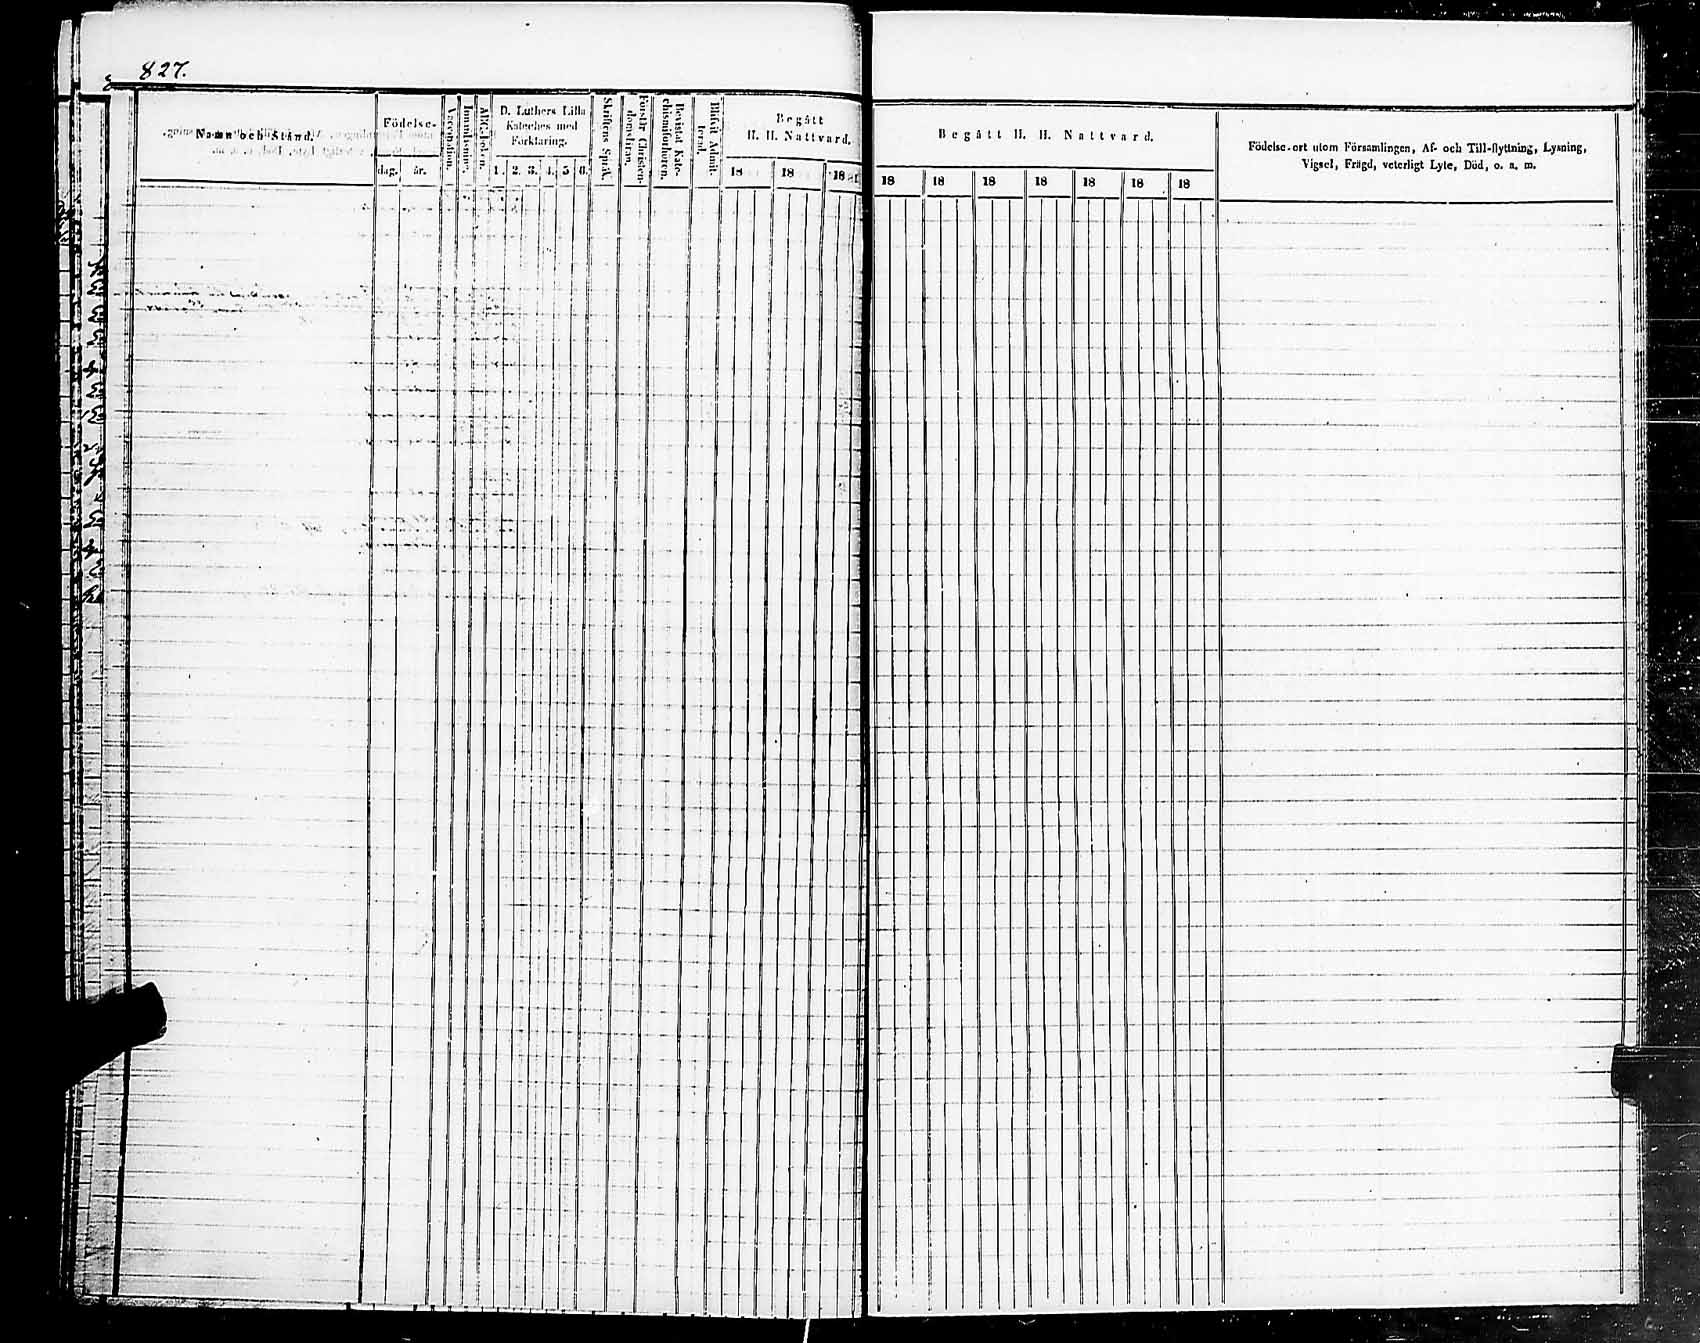 827.
Namn och Stånd.
Födelse-
dag. år.
Vaccination.
Innanläsning.
ABC-boken.
D. Luthers Lilla
Kateches med
Förklaring.
1. 2. 3. 4. 5 6.
Skriftens Språk.
Förstår Christen-
domsläran.
Bevistat Kate-
chismiförhören.
Blifvit Admit-
terad.
Begått
H. H. Nattvard.
18 18 18
Begått H. H. Nattvard.
18 18 18 18 18 18 18
Födelse-ort utom Församlingen, Af- och Till-flyttning, Lysning,
Vigsel, Frägd, veterligt Lyte, Död, o. s. m.